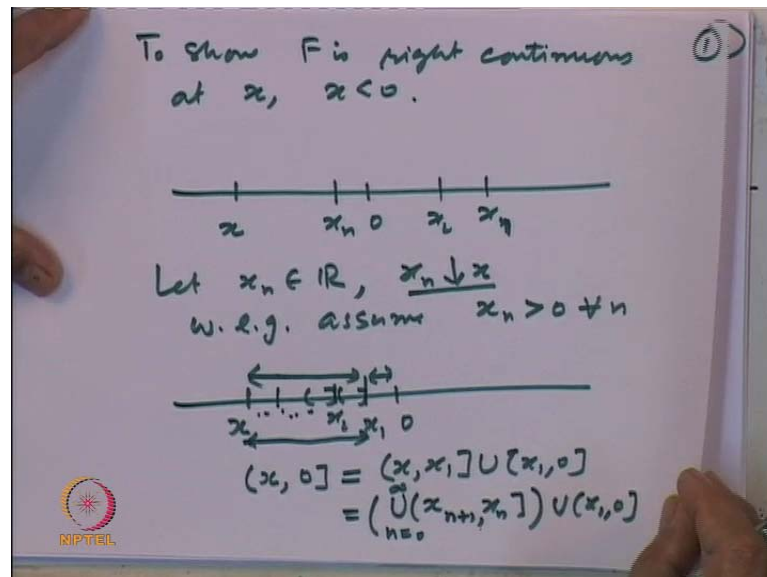 To show F is right continuous ①
at x, x < 0.
x xₙ 0 x₂ xₙ
Let xₙ ∈ ℝ, xₙ ↓ x
w. l. g. assume xₙ > 0 ∀ n
x x₂ x₁ 0
(x, 0] = (x, x₁] ∪ [x₁, 0]
= (⋃_{n=0}^{∞} (xₙ₊₁, xₙ]) ∪ (x₁, 0]
NPTEL